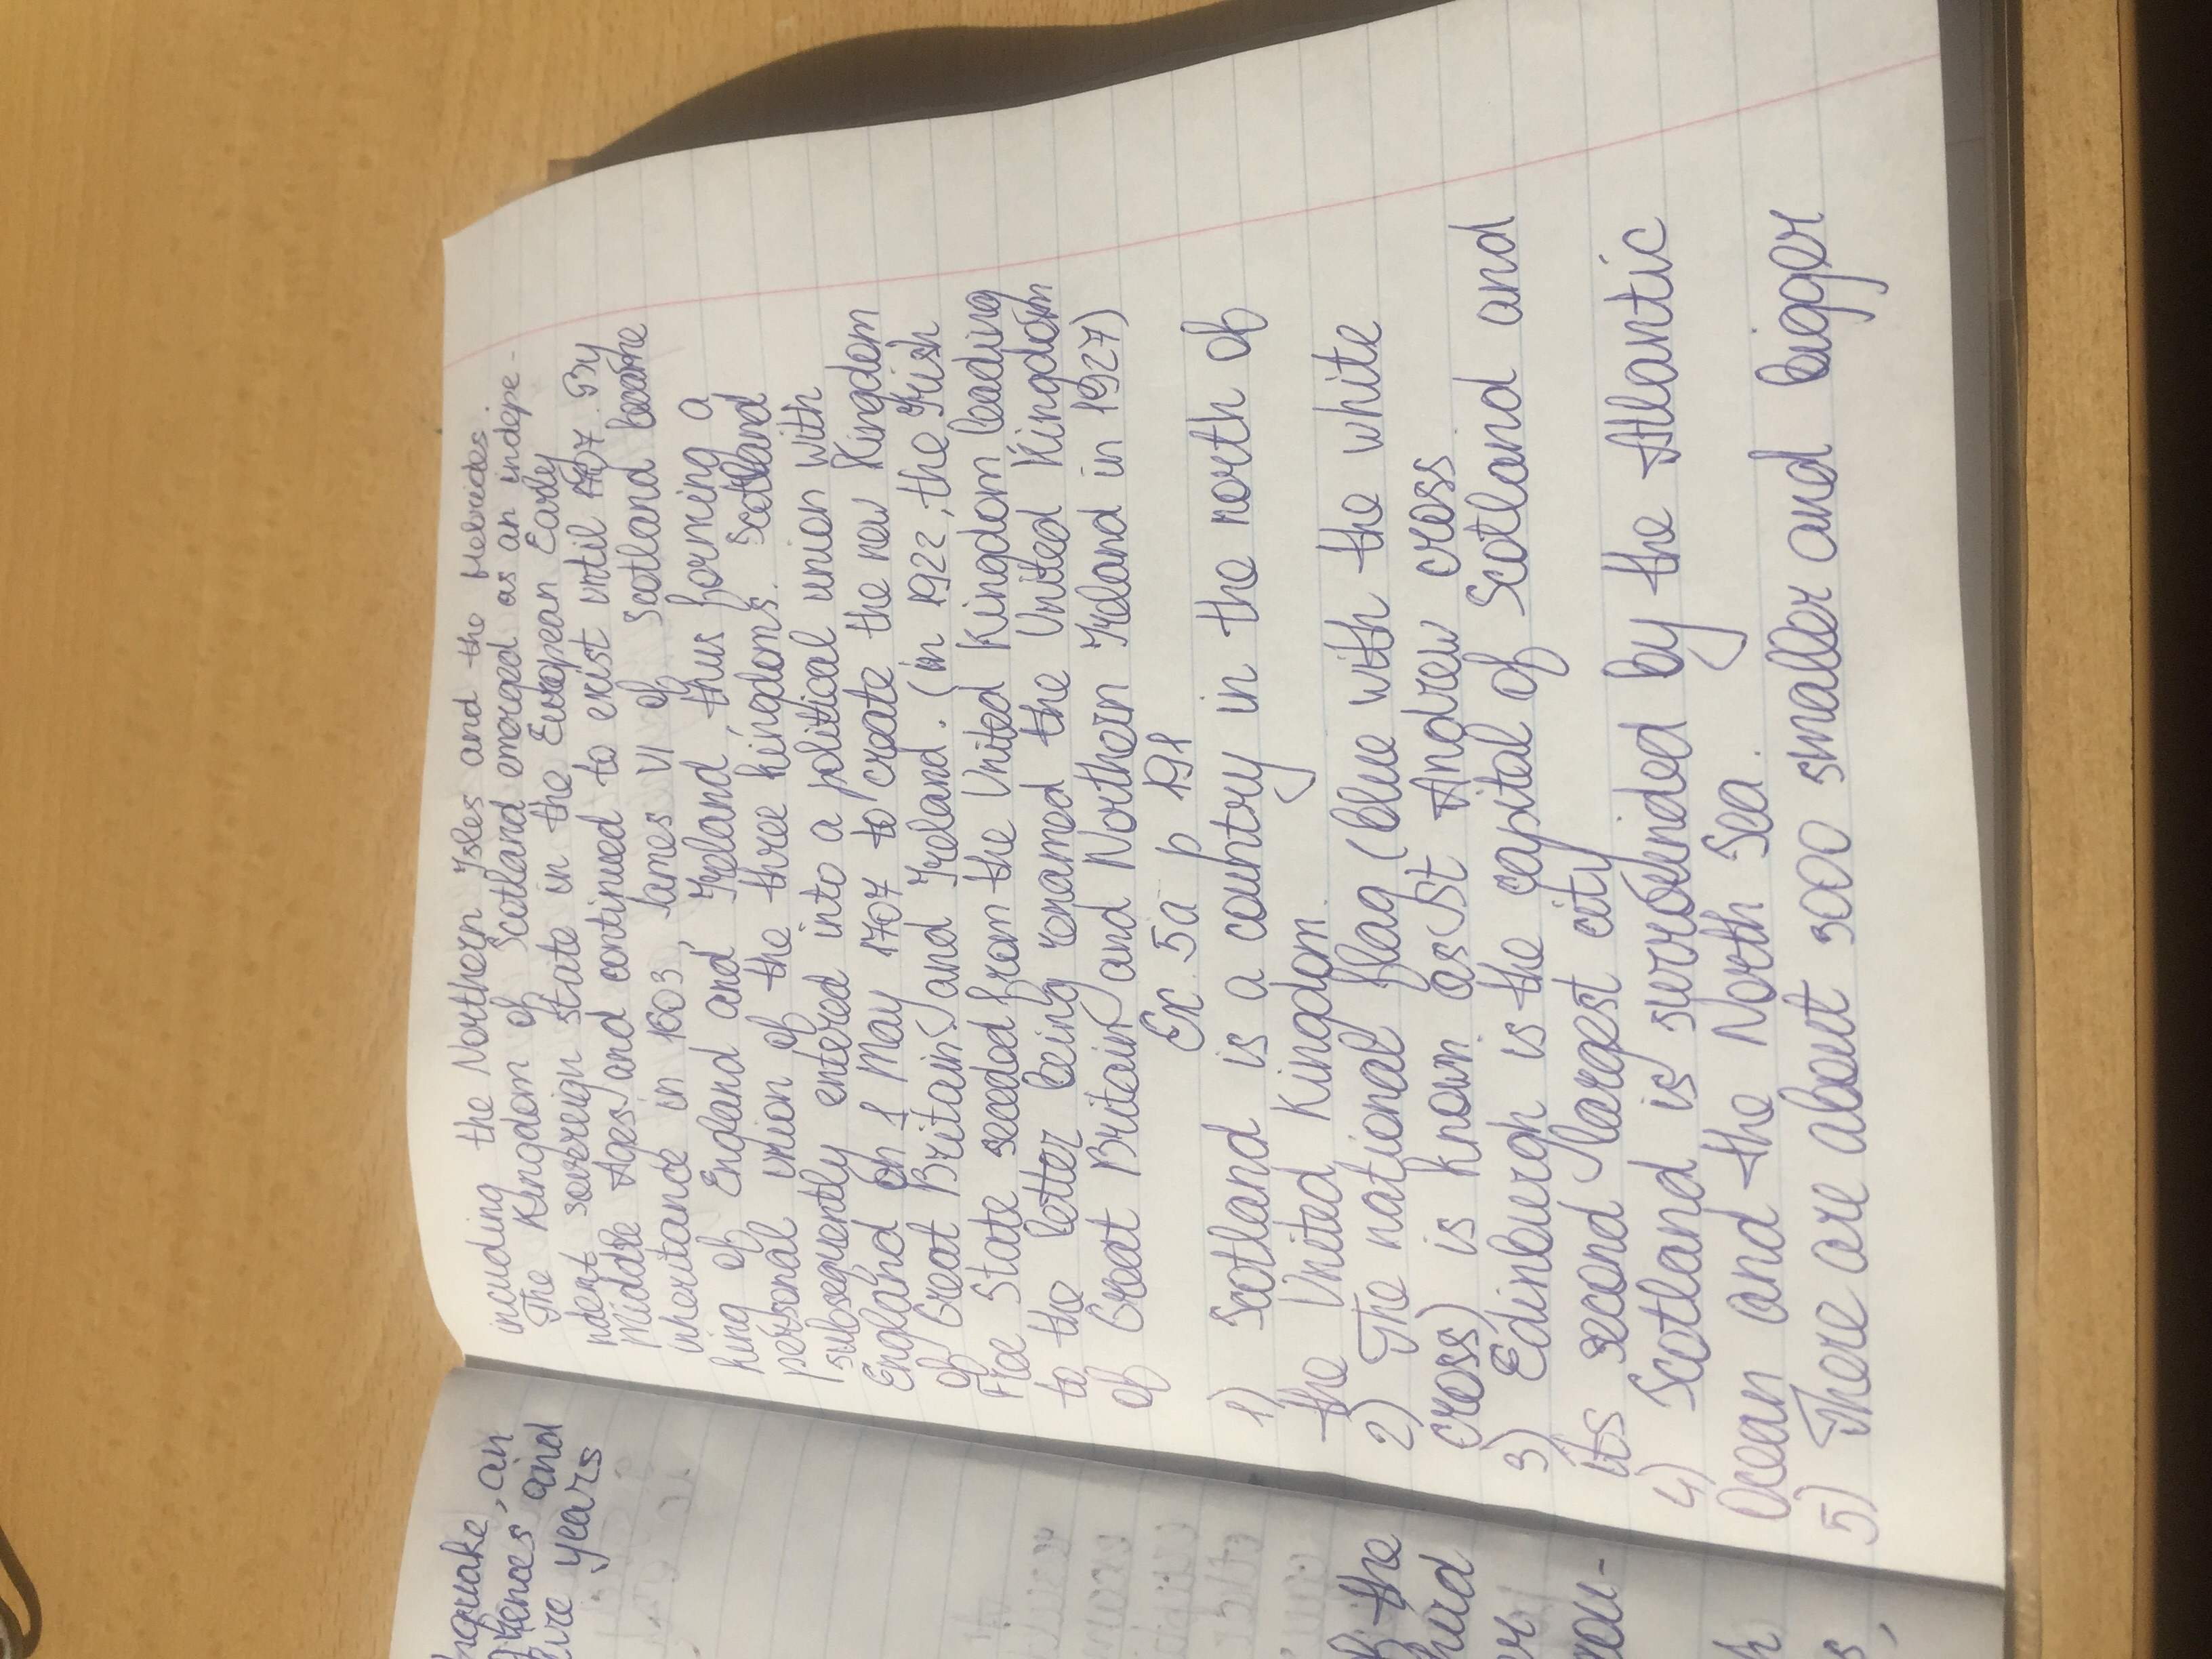 nquake, an
ences and
ire years
the
hird
er
rou-
including the Northern Isles and the Hebrides.
The Kingdom of Scotland emerged as an indepe-
ndent sovereign state in the European Early
Middle Ages and continued to exist until 1707. By
inheritance in 1603, James VI of Scotland became
king of England and Ireland, thus forming a
personal union of the three kingdoms. Scotland
subsequently entered into a political union with
England on 1 May 1707 to create the new Kingdom
of Great Britain and Ireland. (in 1922, the Irish
Free State seceded from the United Kingdom leading
to the letter being renamed the United Kingdom
of Great Britain and Northern Ireland in 1927)
Ex. 5a p 191
1) Scotland is a country in the north of
the United Kingdom.
2) The national flag (blue with the white
cross) is known as St Andrew cross.
3) Edinburgh is the capital of Scotland and
its second largest city
4) Scotland is surrounded by the Atlantic
Ocean and the North Sea.
5) There are about 3000 smaller and bigger